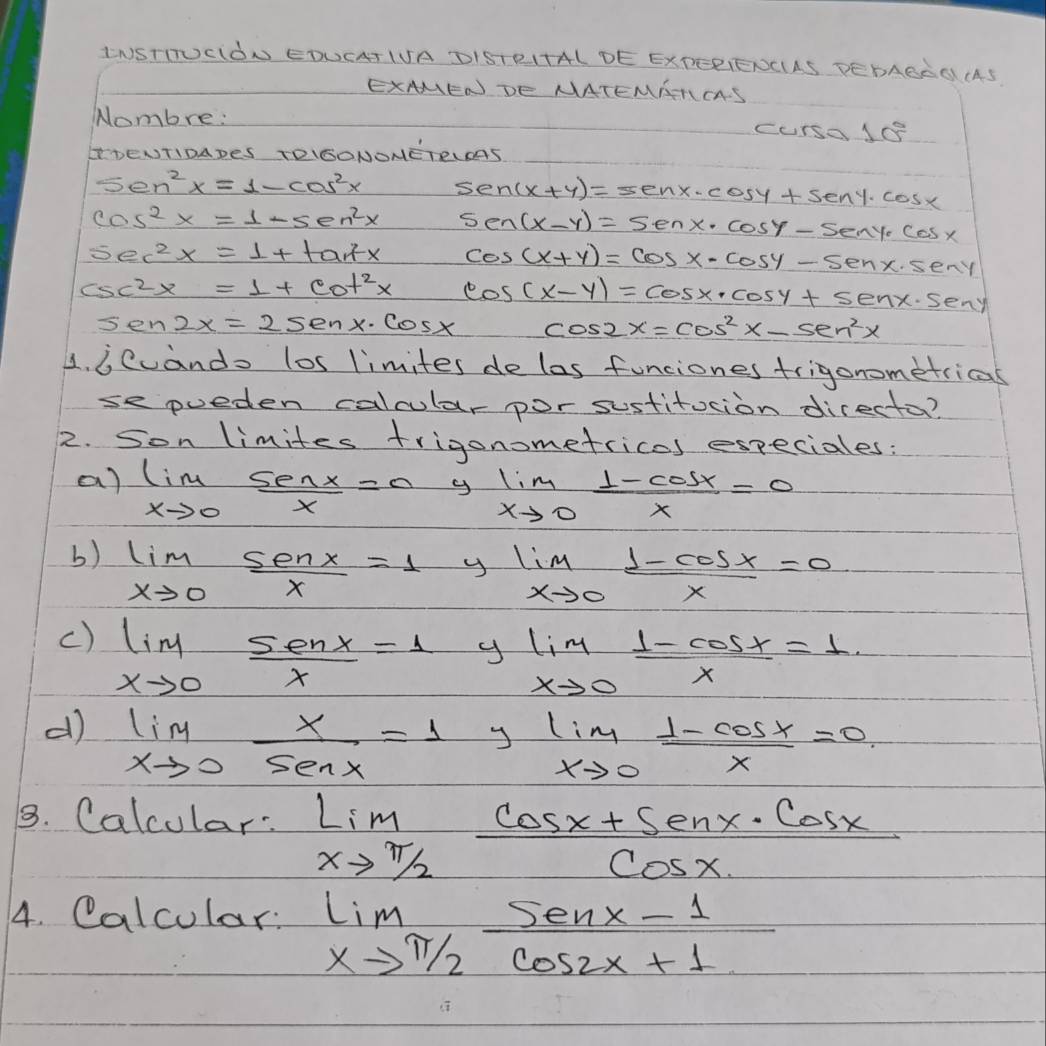 INSTITUCIÓN EDUCATIVA DISTRITAL DE EXPERIENCIAS PEDAGÓGICAS
EXAMEN DE MATEMÁTICAS
Nombre: Curso 10º
IDENTIDADES TRIGONOMÉTRICAS
Sen²x = 1 - cos²x sen(x+y) = senx·cosy + seny·cosx
cos²x = 1 - sen²x sen(x-y) = senx·cosy - seny·cosx
sec²x = 1 + tan²x cos(x+y) = cosx·cosy - senx·seny
csc²x = 1 + cot²x cos(x-y) = cosx·cosy + senx·seny
sen2x = 2senx·cosx cos2x = cos²x - sen²x
1. ¿Cuàndo los limites de las funciones trigonomètricas
se pueden calcular por sustitución directa?
2. Son limites trigonometricos especiales:
a) lim senx/x = 0 y lim 1-cosx/x = 0
x→0 x→0
b) lim senx/x = 1 y lim 1-cosx/x = 0
x→0 x→0
c) lim senx/x = 1 y lim 1-cosx/x = 1.
x→0 x→0
d) lim x/senx = 1 y lim 1-cosx/x = 0.
x→0 x→0
3. Calcular: Lim cosx + senx·cosx/cosx.
x→π/2
4. Calcular: Lim senx - 1/cos2x + 1
x→π/2